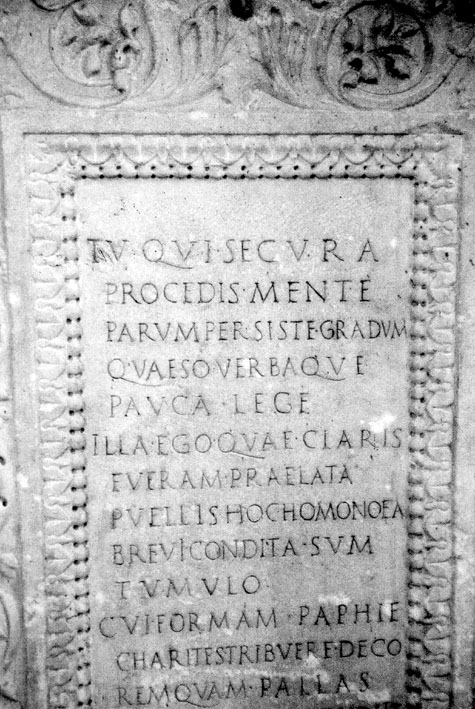 TV·QVI·SECVRA
PROCEDIS·MENTE
PARVMPER·SISTE·GRADVM
QVAESO·VERBAQVE
PAVCA·LEGE
ILLA·EGO·QVAE·CLARIS
FVERAM·PRAELATA
PVELLIS·HOC·HOMONOEA
BREVI·CONDITA·SVM
TVMVLO·
CVI·FORMAM·PAPHIE
CHARITES·TRIBVERE·DECO
REM·QVAM·PALLAS